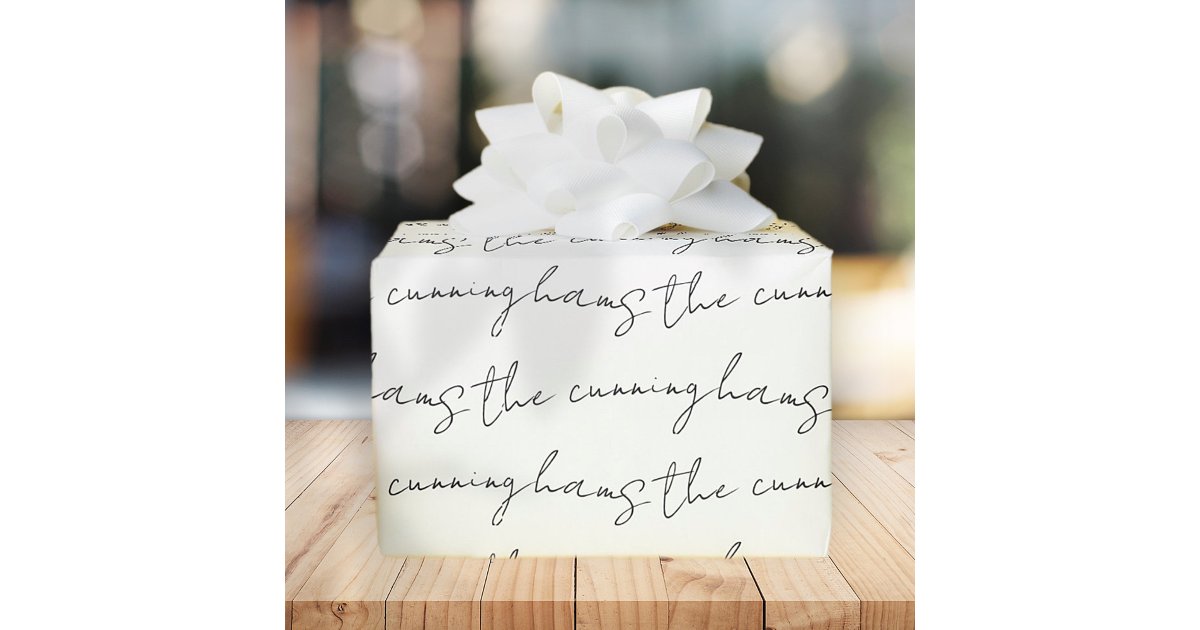 hams
cunninghams the cunn
hams the cunninghams
cunninghams the cunn